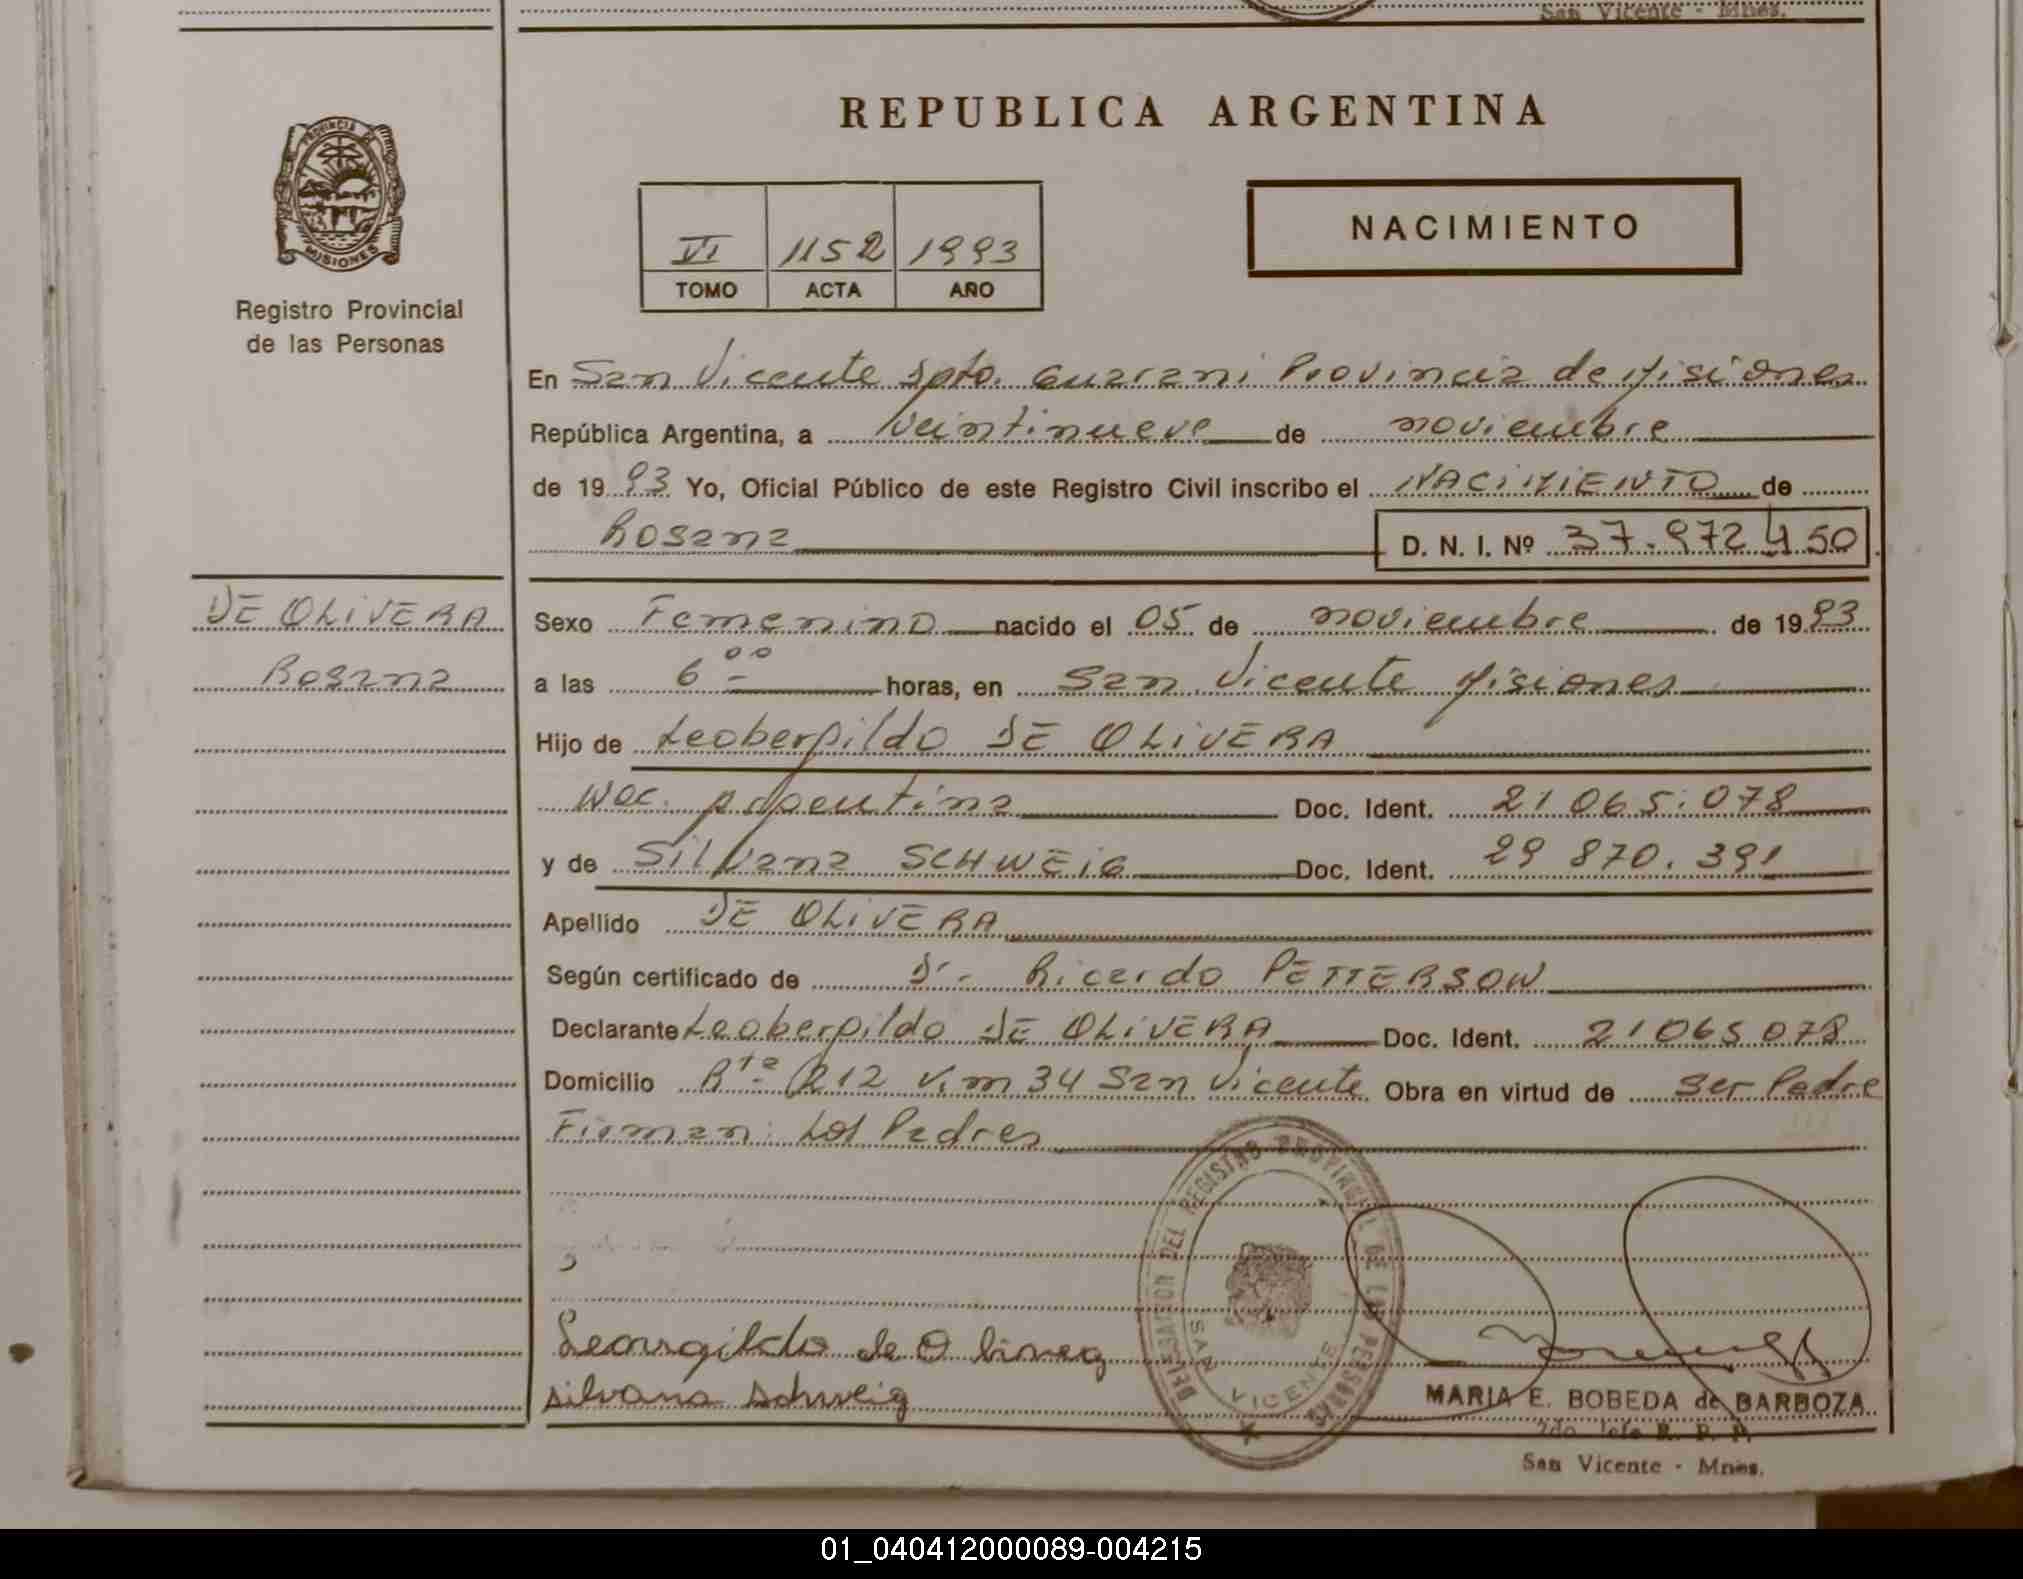 San Vicente - Mnes.
REPUBLICA ARGENTINA
PROVINCIA DE
MISIONES
Registro Provincial
de las Personas
VI 1152 1993
TOMO ACTA AÑO
NACIMIENTO
En San Vicente Dpto. Guarani Provincia de Misiones
República Argentina, a veintinueve de noviembre
de 1993 Yo, Oficial Público de este Registro Civil inscribo el NACIMIENTO de
Rosana D. N. I. Nº 37.972450
DE OLIVERA
Rosana
Sexo Femenino nacido el 05 de noviembre de 1993
a las 6 00 horas, en San Vicente Misiones
Hijo de Leobergildo DE OLIVERA
Nac. Argentina Doc. Ident. 21065.078
y de Silvana SCHWEIG Doc. Ident. 29 870.391
Apellido DE OLIVERA
Según certificado de Dr. Ricardo PETTERSON
Declarante Leobergildo DE OLIVERA Doc. Ident. 21065078
Domicilio Rta 212 Km 34 San Vicente Obra en virtud de ser Padre
Firman: Los Padres
DELEGACION DEL REGISTRO PROVINCIAL DE LAS PERSONAS
SAN VICENTE
Leovgildo de Olivera
silvana schweig
MARIA E. BOBEDA de BARBOZA
2do Jefe R. P. P.
San Vicente - Mnes.
01_040412000089-004215